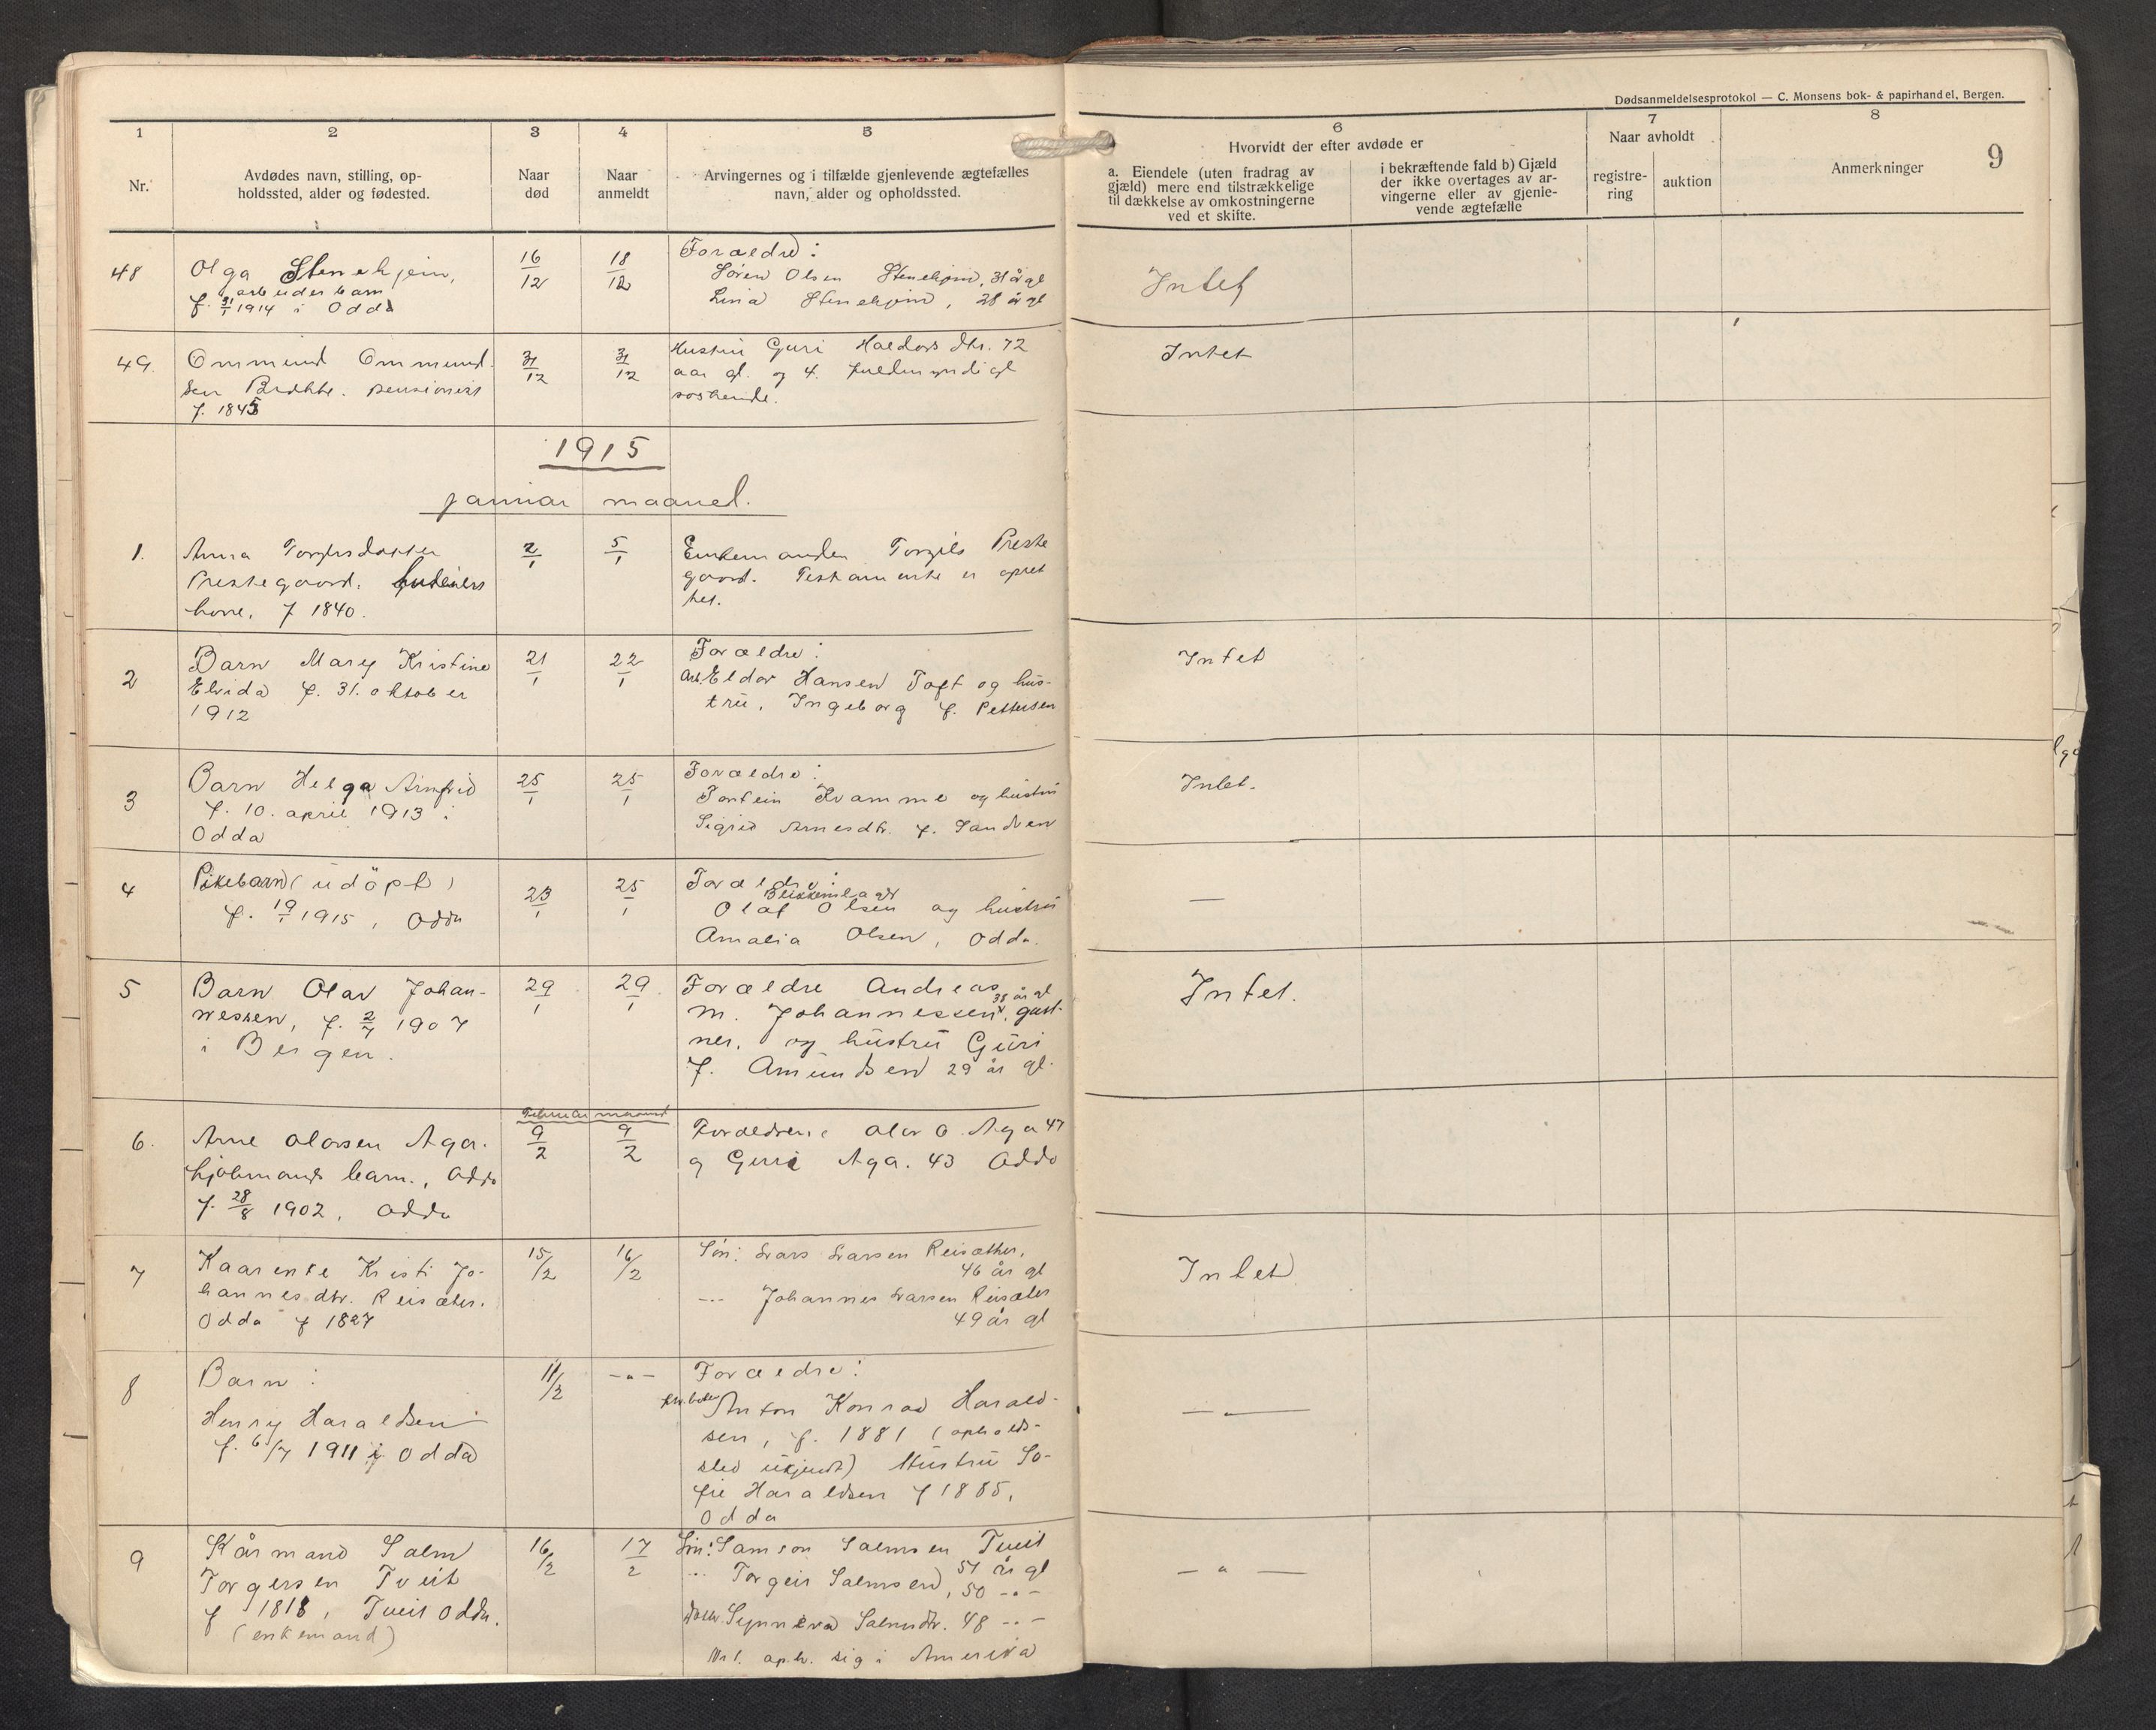 Dødsanmeldelsesprotokol — C. Monsens bok- & papirhandel, Bergen.
9
1 2 3 4 5 6 7 8
Nr.
Avdødes navn, stilling, op-
holdssted, alder og fødested.
Naar
død
Naar
anmeldt
Arvingernes og i tilfælde gjenlevende ægtefælles
navn, alder og opholdssted.
Hvorvidt der efter avdøde er
a. Eiendele (uten fradrag av
gjæld) mere end tilstrækkelige
til dækkelse av omkostningerne
ved et skifte.
i bekræftende fald b) Gjæld
der ikke overtages av ar-
vingerne eller av gjenle-
vende ægtefælle
Naar avholdt
registre-
ring
auktion
Anmerkninger
48
Olga Stenehjem,
arbeiderbarn
f. 31/1 1914 i Odda
16/12
18/12
Forældre:
Søren Olsen Stenehjem, 31 år gl
Lina Stenehjem, 28 år gl
Intet
49.
Ommund Ommund.
sen Brakke. pensionist
f. 1845
31/12
31/12
Hustru Guri Haldors dtr. 72
aar gl. og 4. fuldmyndige
søskende.
Intet
1915
januar maaned.
1.
Anna Torgilsdatter
Prestegaard.
kone. f 1840.
2/1
5/1
Enkemanden Torgils Preste
gaard. Testamente er opret
tet.
2
Barn Mary Kristine
Elvida f. 31. oktober
1912
21/1
22/1
Forældre:
Arb. Eldor Hansen Toft og hus-
tru, Ingeborg f. Pettersen
Intet
3
Barn Helga Arnfrid
f. 10. april 1913 i
Odda
25/1
25/1
Forældre:
Torstein Kvamme og hustru
Sigrid Arnesdtr. f. Sandven
Intet.
4
Pikebarn (udöpt)
f. 19/1 1915, Odda
23/1
25/1
Forældre:
Blikkenslager
Olaf Olsen og hustru
Amalia Olsen, Odda.
—
5
Barn Olav Johan-
nessen, f. 2/7 1907
i Bergen.
29/1
29/1
Forældre Andreas
38 år gl
M. Johannessen, gart-
ner, og hustru Guri
f. Amundsen 29 år gl.
Intet.
Februar maaned
6.
Arne Olavsen Aga.
kjøbmands barn., Odda
f. 28/8 1902, Odda
9/2
9/2
Forældrene Olav O. Aga 47
og Guri Aga. 43 Odda
7
Kaarenke Kristi Jo-
hannesdtr. Reisæter.
Odda f 1827
15/2
16/2
Sön: Lars Larsen Reisæther,
46 år gl
--- Johannes Larsen Reisæter
49 år gl
Intet
8
Barn:
Henry Haraldsen
f. 6/7 1911 i Odda
11/2
-"-
Forældre:
Anton Konrad Harald-
sen, f. 1881 (opholds-
sted ukjendt) Hustru So-
fie Haraldsen f 1885,
Odda
— " —
9
Kårmand Salm
Torgersen Tveit
f 1818, Tveit Odda.
(enkemand)
16/2
17/2
Sön: Samson Salmsen Tveit
51 år gl
... Torgeir Salmsen, 50 -"-
datter Synneva Salmsdtr. 48 -"-
Nr 1. oph. sig i Amerika
— " —